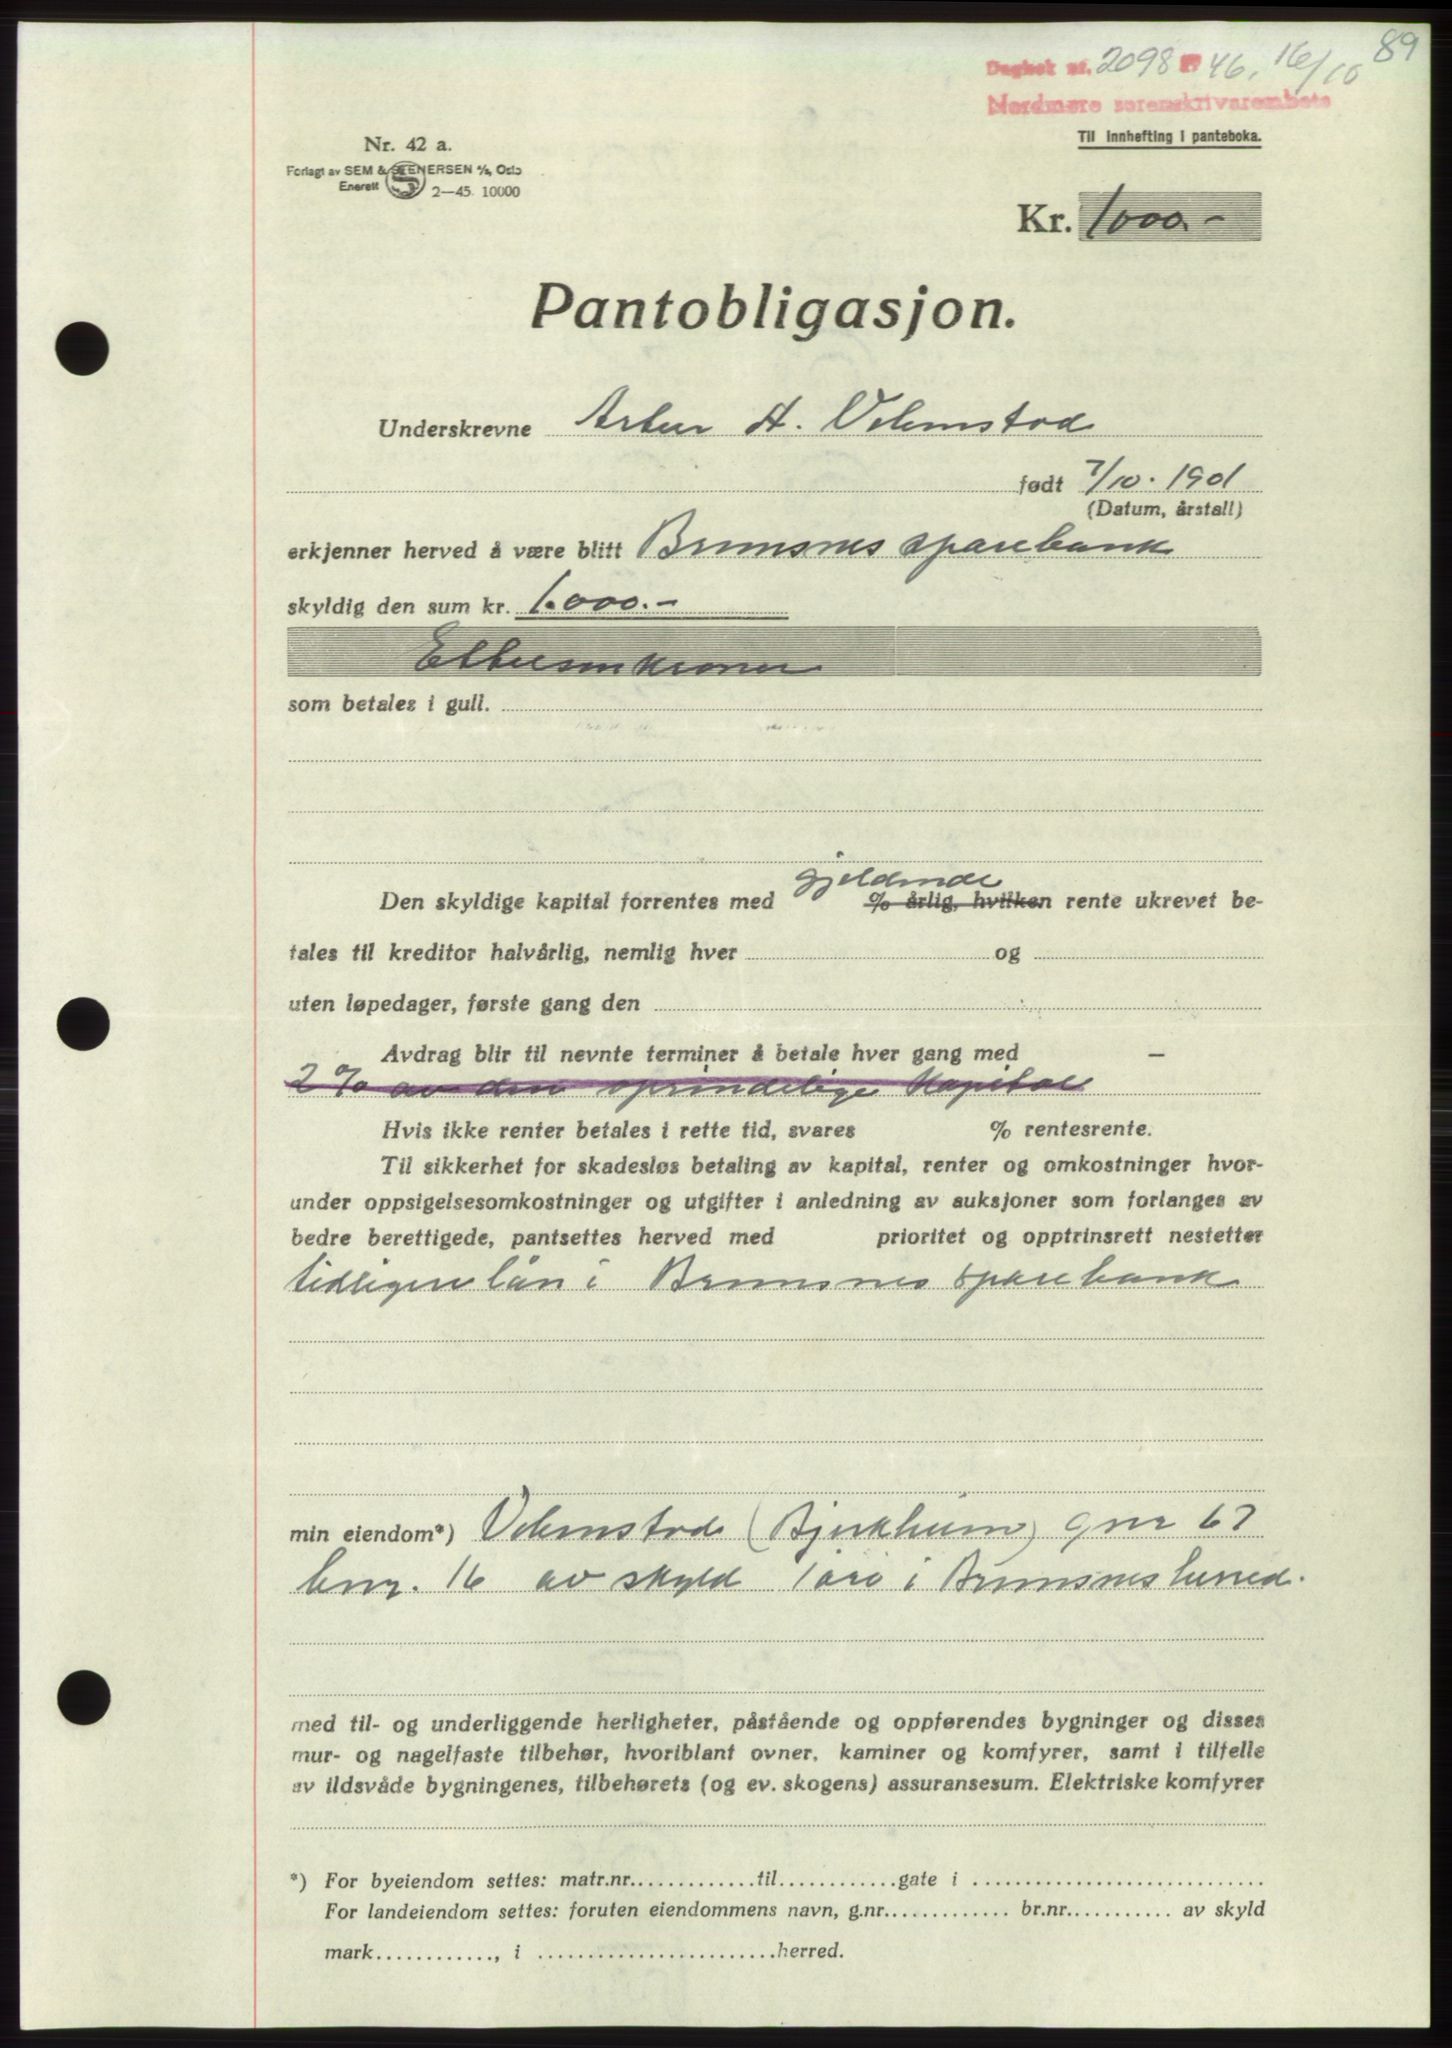 89
Dagbok nr. 2098 46, 16/10
Nordmøre sorenskrivarembete
Til innhefting i panteboka.
Nr. 42 a.
Forlagt av SEM & STENERSEN A/S, Oslo
Enerett 2—45. 10000
Kr. 1000.-
Pantobligasjon.
Underskrevne Artur A. Vebenstad
født 7/10. 1901
(Datum, årstall)
erkjenner herved å være blitt Bremsnes sparebank
skyldig den sum kr. 1.000.-
Ettusenkroner
som betales i gull.
gjeldende
Den skyldige kapital forrentes med % årlig, hvilken rente ukrevet be-
tales til kreditor halvårlig, nemlig hver og
uten løpedager, første gang den
Avdrag blir til nevnte terminer å betale hver gang med —
2% av den oprindelige Kapital
Hvis ikke renter betales i rette tid, svares % rentesrente.
Til sikkerhet for skadesløs betaling av kapital, renter og omkostninger hvor-
under oppsigelsesomkostninger og utgifter i anledning av auksjoner som forlanges av
bedre berettigede, pantsettes herved med prioritet og opptrinsrett nestetter
tidligere lån i Bremsnes sparebank
min eiendom*) (Bjerkheim) gnr 67
bnr. 16 av skyld 1 øre i Bremsnes herred.
med til- og underliggende herligheter, påstående og oppførendes bygninger og disses
mur- og nagelfaste tilbehør, hvoriblant ovner, kaminer og komfyrer, samt i tilfelle
av ildsvåde bygningenes, tilbehørets (og ev. skogens) assuransesum. Elektriske komfyrer
*) For byeiendom settes: matr.nr.............til............gate i ............................
For landeiendom settes: foruten eiendommens navn, g.nr............. br.nr........... av skyld
mark............, i .......................herred.